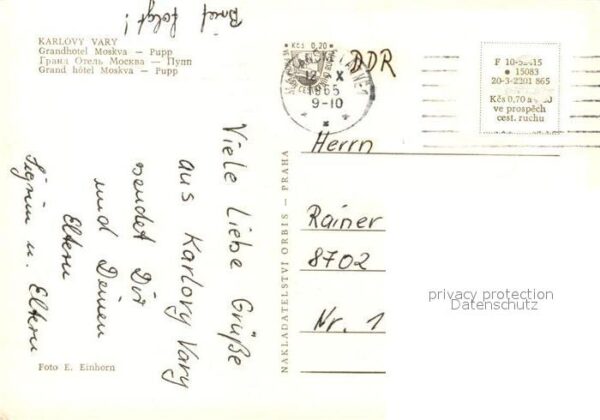 Brief folgt!
KARLOVY VARY
Grandhotel Moskva — Pupp
Гранд Отель Москва — Пупп
Grand hôtel Moskva — Pupp
Viele Liebe Grüße
aus Karlovy Vary
sendet Dir
und Deinen
Eltern
Sigrun u. Eltern
Foto E. Einhorn
NAKLADATELSTVÍ ORBIS — PRAHA
Kčs 0,20
12. X
1965
9-10
DDR
F 10-52615
15083
20-3-2201 865
Kčs 0,70 a
ve prospěch
cest. ruchu
Herrn
Rainer
8702
Nr. 1
privacy protection
Datenschutz